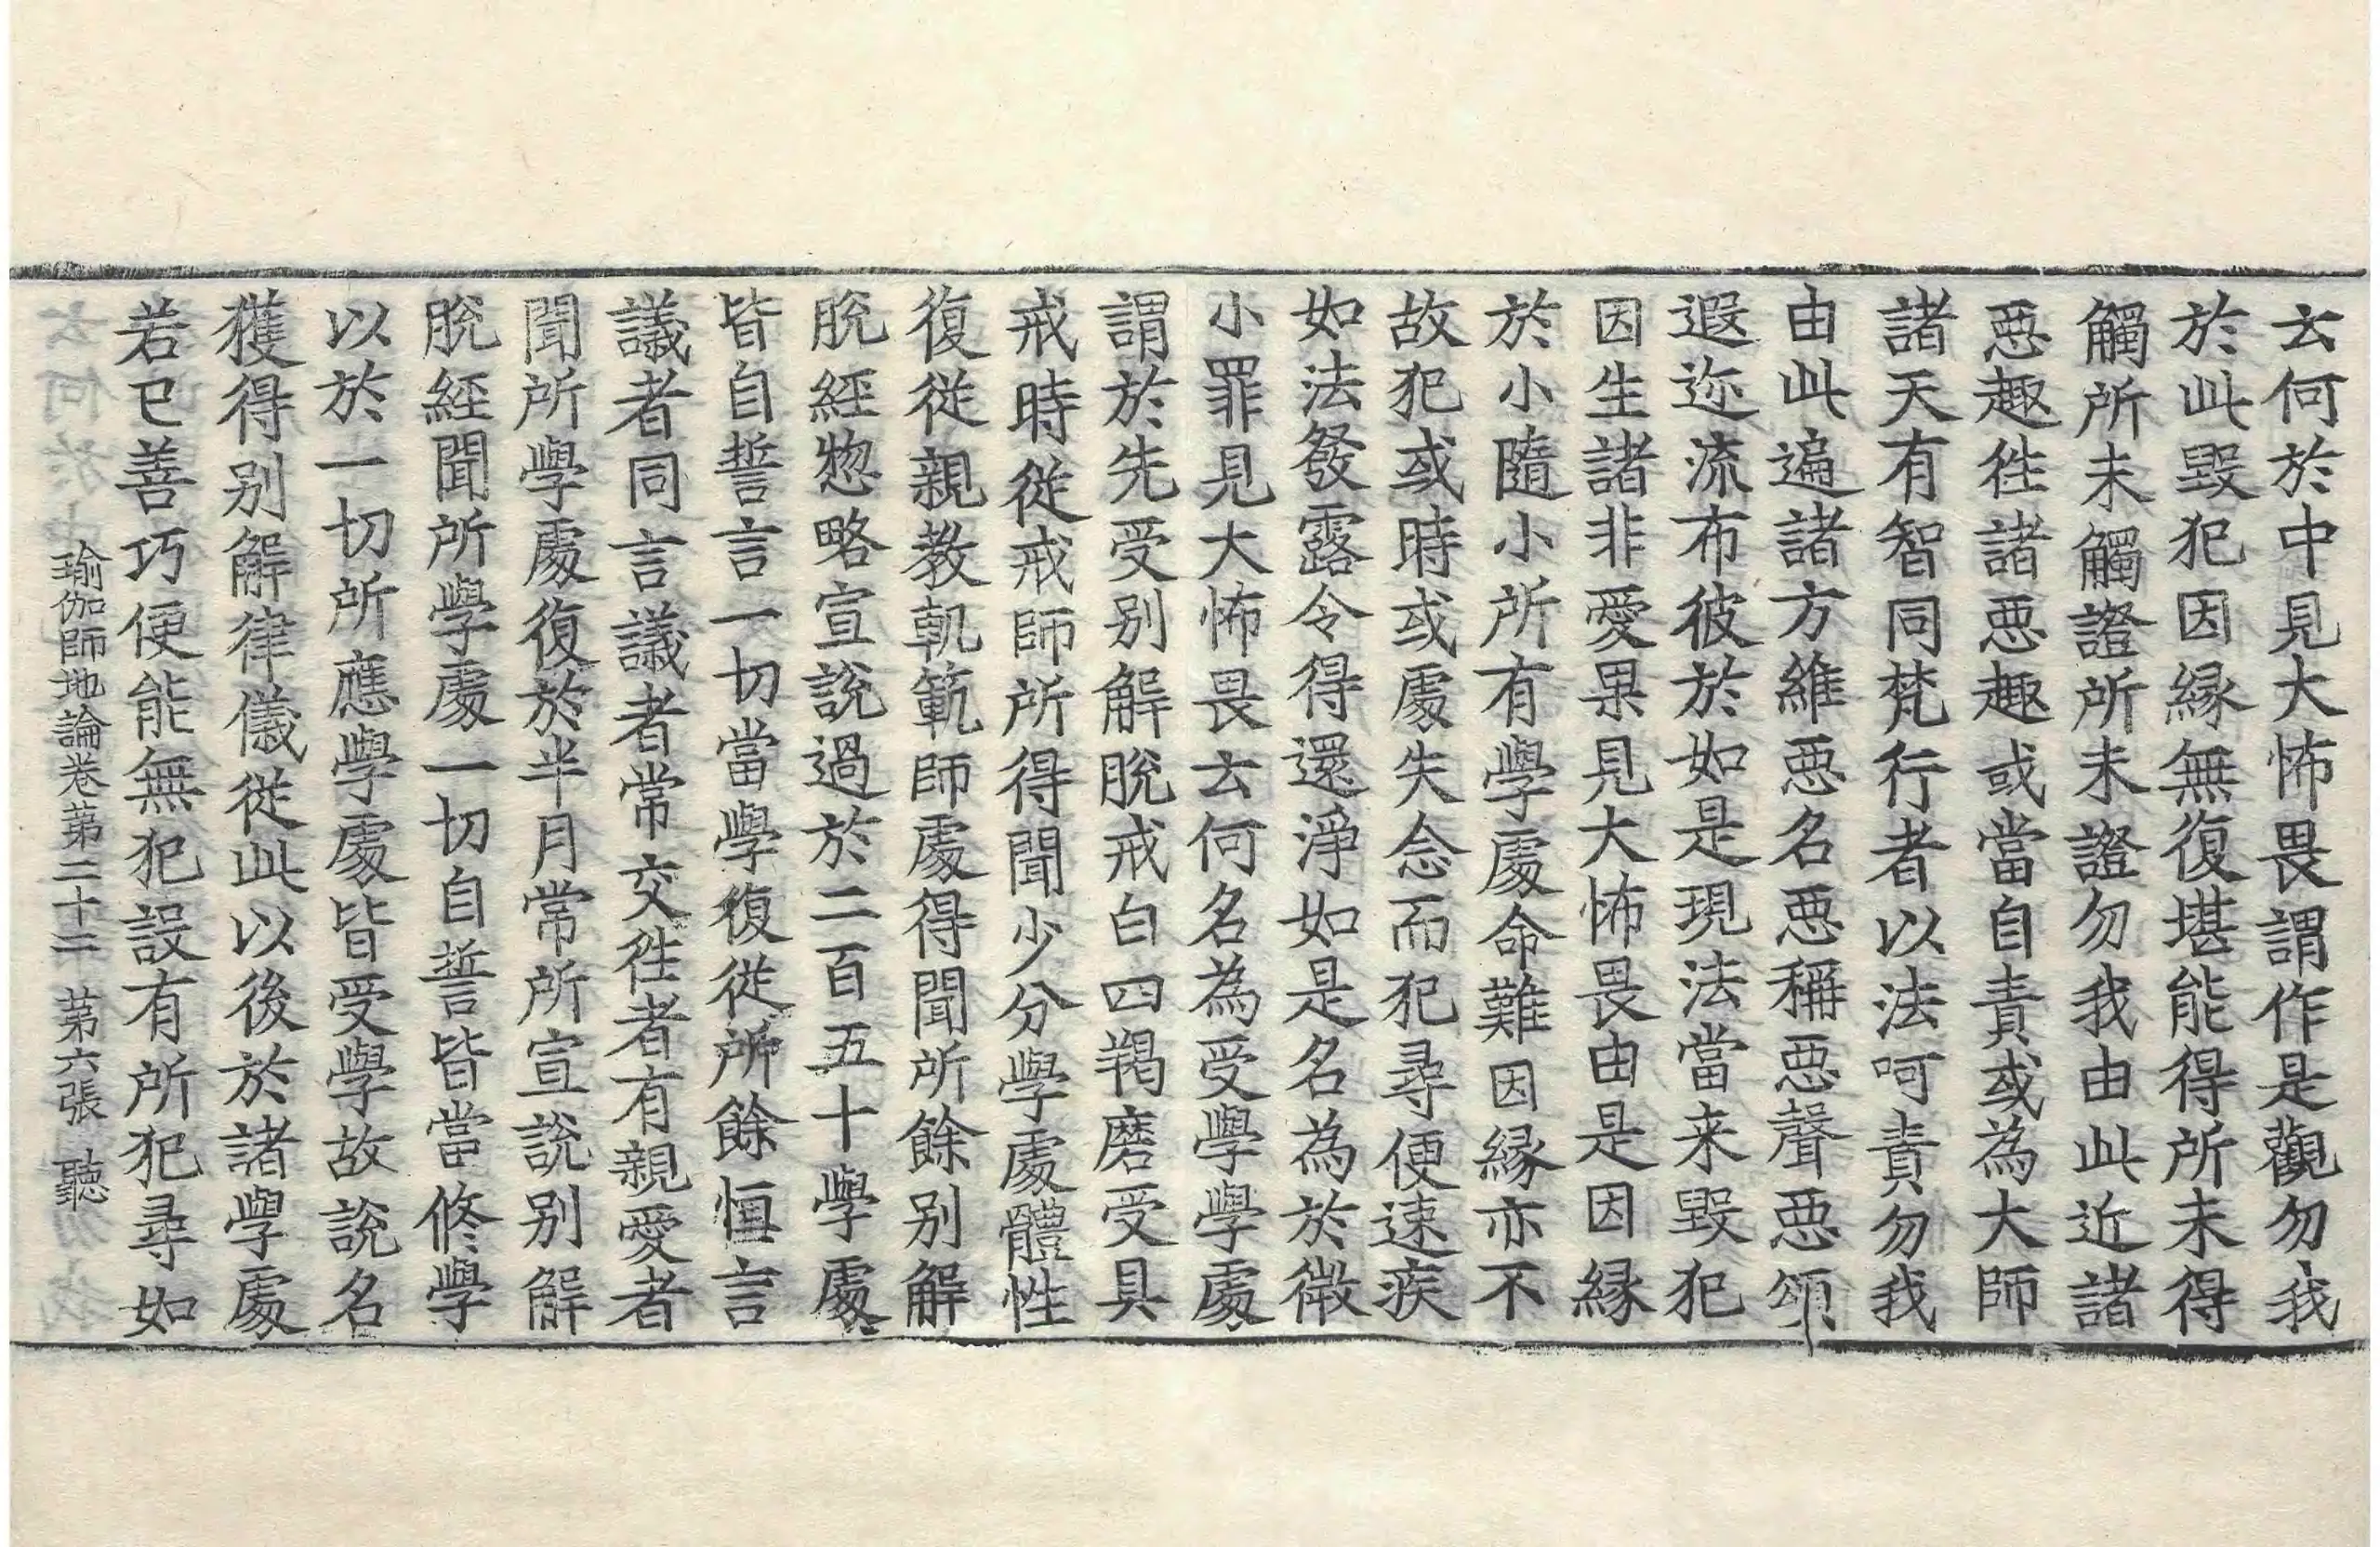 云何於中見大怖畏謂作是觀勿我
於此毀犯因縁無復堪能得所未得
觸所未觸證所未證勿我由此近諸
惡趣徃諸惡趣或當自責或為大師
諸天有智同梵行者以法呵責勿我
由此遍諸方維惡名惡稱惡聲惡頌
遐迩流布彼於如是現法當来毀犯
因生諸非愛果見大怖畏由是因縁
於小隨小所有學處命難因縁亦不
故犯或時或處失念而犯尋便速疾
如法發露令得還淨如是名為於微
小罪見大怖畏云何名為受學學處
謂於先受别解脫戒白四羯磨受具
戒時從戒師所得聞少分學處體性
復從親教軌範師處得聞所餘别解
脫經惣略宣說過於二百五十學處
皆自誓言一切當學復從所餘恒言
議者同言議者常交徃者有親愛者
聞所學處復於半月常所宣說别解
脫經聞所學處一切自誓皆當修學
以於一切所應學處皆受學故說名
獲得别解律儀從此以後於諸學處
若已善巧便能無犯設有所犯尋如
瑜伽師地論卷第二十二 第六張 聽